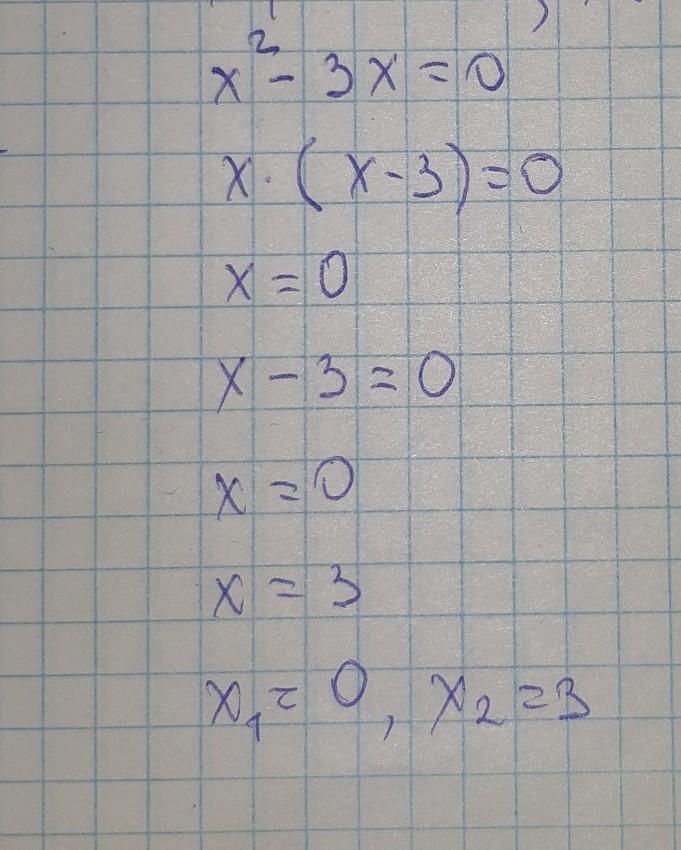 x² - 3x = 0
x · (x - 3) = 0
x = 0
x - 3 = 0
x = 0
x = 3
x₁ = 0, x₂ = 3